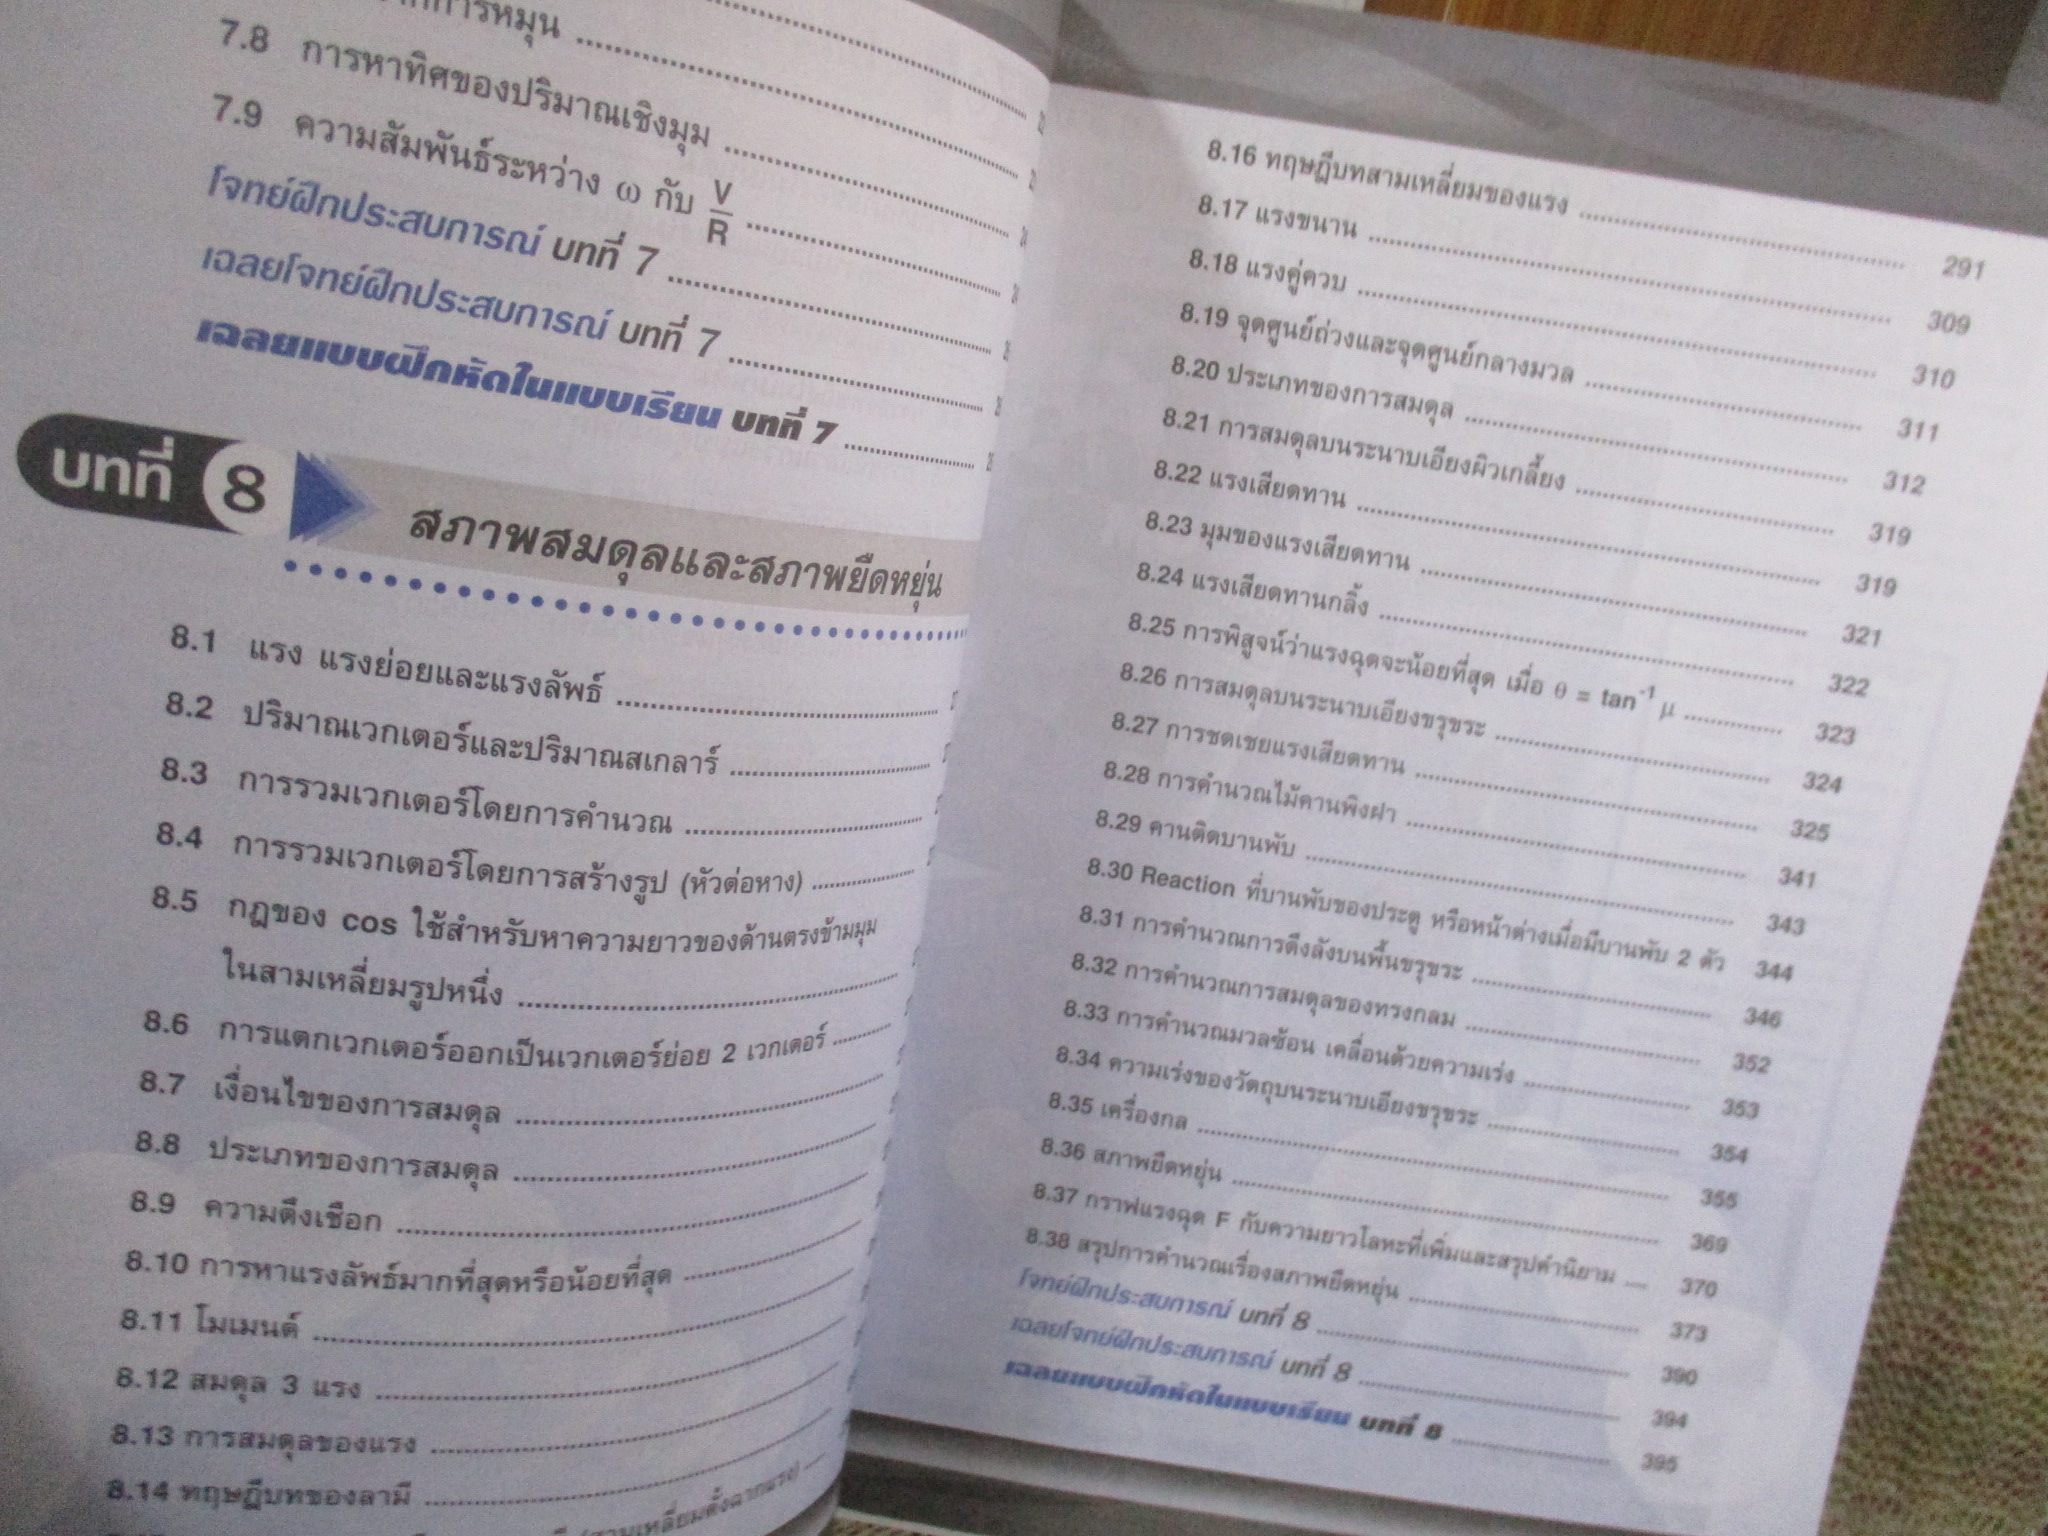 การหมุน
7.8 การหาทิศของปริมาณเชิงมุม
7.9 ความสัมพันธ์ระหว่าง ω กับ V/R
โจทย์ฝึกประสบการณ์ บทที่ 7
เฉลยโจทย์ฝึกประสบการณ์ บทที่ 7
เฉลยแบบฝึกหัดในแบบเรียน บทที่ 7
บทที่ 8 สภาพสมดุลและสภาพยืดหยุ่น
8.1 แรง แรงย่อยและแรงลัพธ์
8.2 ปริมาณเวกเตอร์และปริมาณสเกลาร์
8.3 การรวมเวกเตอร์โดยการคำนวณ
8.4 การรวมเวกเตอร์โดยการสร้างรูป (หัวต่อหาง)
8.5 กฎของ cos ใช้สำหรับหาความยาวของด้านตรงข้ามมุม
ในสามเหลี่ยมรูปหนึ่ง
8.6 การแตกเวกเตอร์ออกเป็นเวกเตอร์ย่อย 2 เวกเตอร์
8.7 เงื่อนไขของการสมดุล
8.8 ประเภทของการสมดุล
8.9 ความตึงเชือก
8.10 การหาแรงลัพธ์มากที่สุดหรือน้อยที่สุด
8.11 โมเมนต์
8.12 สมดุล 3 แรง
8.13 การสมดุลของแรง
8.14 ทฤษฎีบทของลามี
(สามเหลี่ยมตั้งฉากแรง)
8.16 ทฤษฎีบทสามเหลี่ยมของแรง 291
8.17 แรงขนาน 309
8.18 แรงคู่ควบ 310
8.19 จุดศูนย์ถ่วงและจุดศูนย์กลางมวล 311
8.20 ประเภทของการสมดุล 312
8.21 การสมดุลบนระนาบเอียงผิวเกลี้ยง 319
8.22 แรงเสียดทาน 319
8.23 มุมของแรงเสียดทาน 321
8.24 แรงเสียดทานกลิ้ง 322
8.25 การพิสูจน์ว่าแรงฉุดจะน้อยที่สุด เมื่อ θ = tan⁻¹ μ 323
8.26 การสมดุลบนระนาบเอียงขรุขระ 324
8.27 การชดเชยแรงเสียดทาน 325
8.28 การคำนวณไม้คานพิงฝา 341
8.29 คานติดบานพับ 343
8.30 Reaction ที่บานพับของประตู หรือหน้าต่างเมื่อมีบานพับ 2 ตัว 344
8.31 การคำนวณการดึงลังบนพื้นขรุขระ 346
8.32 การคำนวณการสมดุลของทรงกลม 352
8.33 การคำนวณมวลซ้อน เคลื่อนด้วยความเร่ง 353
8.34 ความเร่งของวัตถุบนระนาบเอียงขรุขระ 354
8.35 เครื่องกล 355
8.36 สภาพยืดหยุ่น 369
8.37 กราฟแรงฉุด F กับความยาวโลหะที่เพิ่มและสรุปคำนิยาม 370
8.38 สรุปการคำนวณเรื่องสภาพยืดหยุ่น 373
โจทย์ฝึกประสบการณ์ บทที่ 8 390
เฉลยโจทย์ฝึกประสบการณ์ บทที่ 8 394
เฉลยแบบฝึกหัดในแบบเรียน บทที่ 8 395